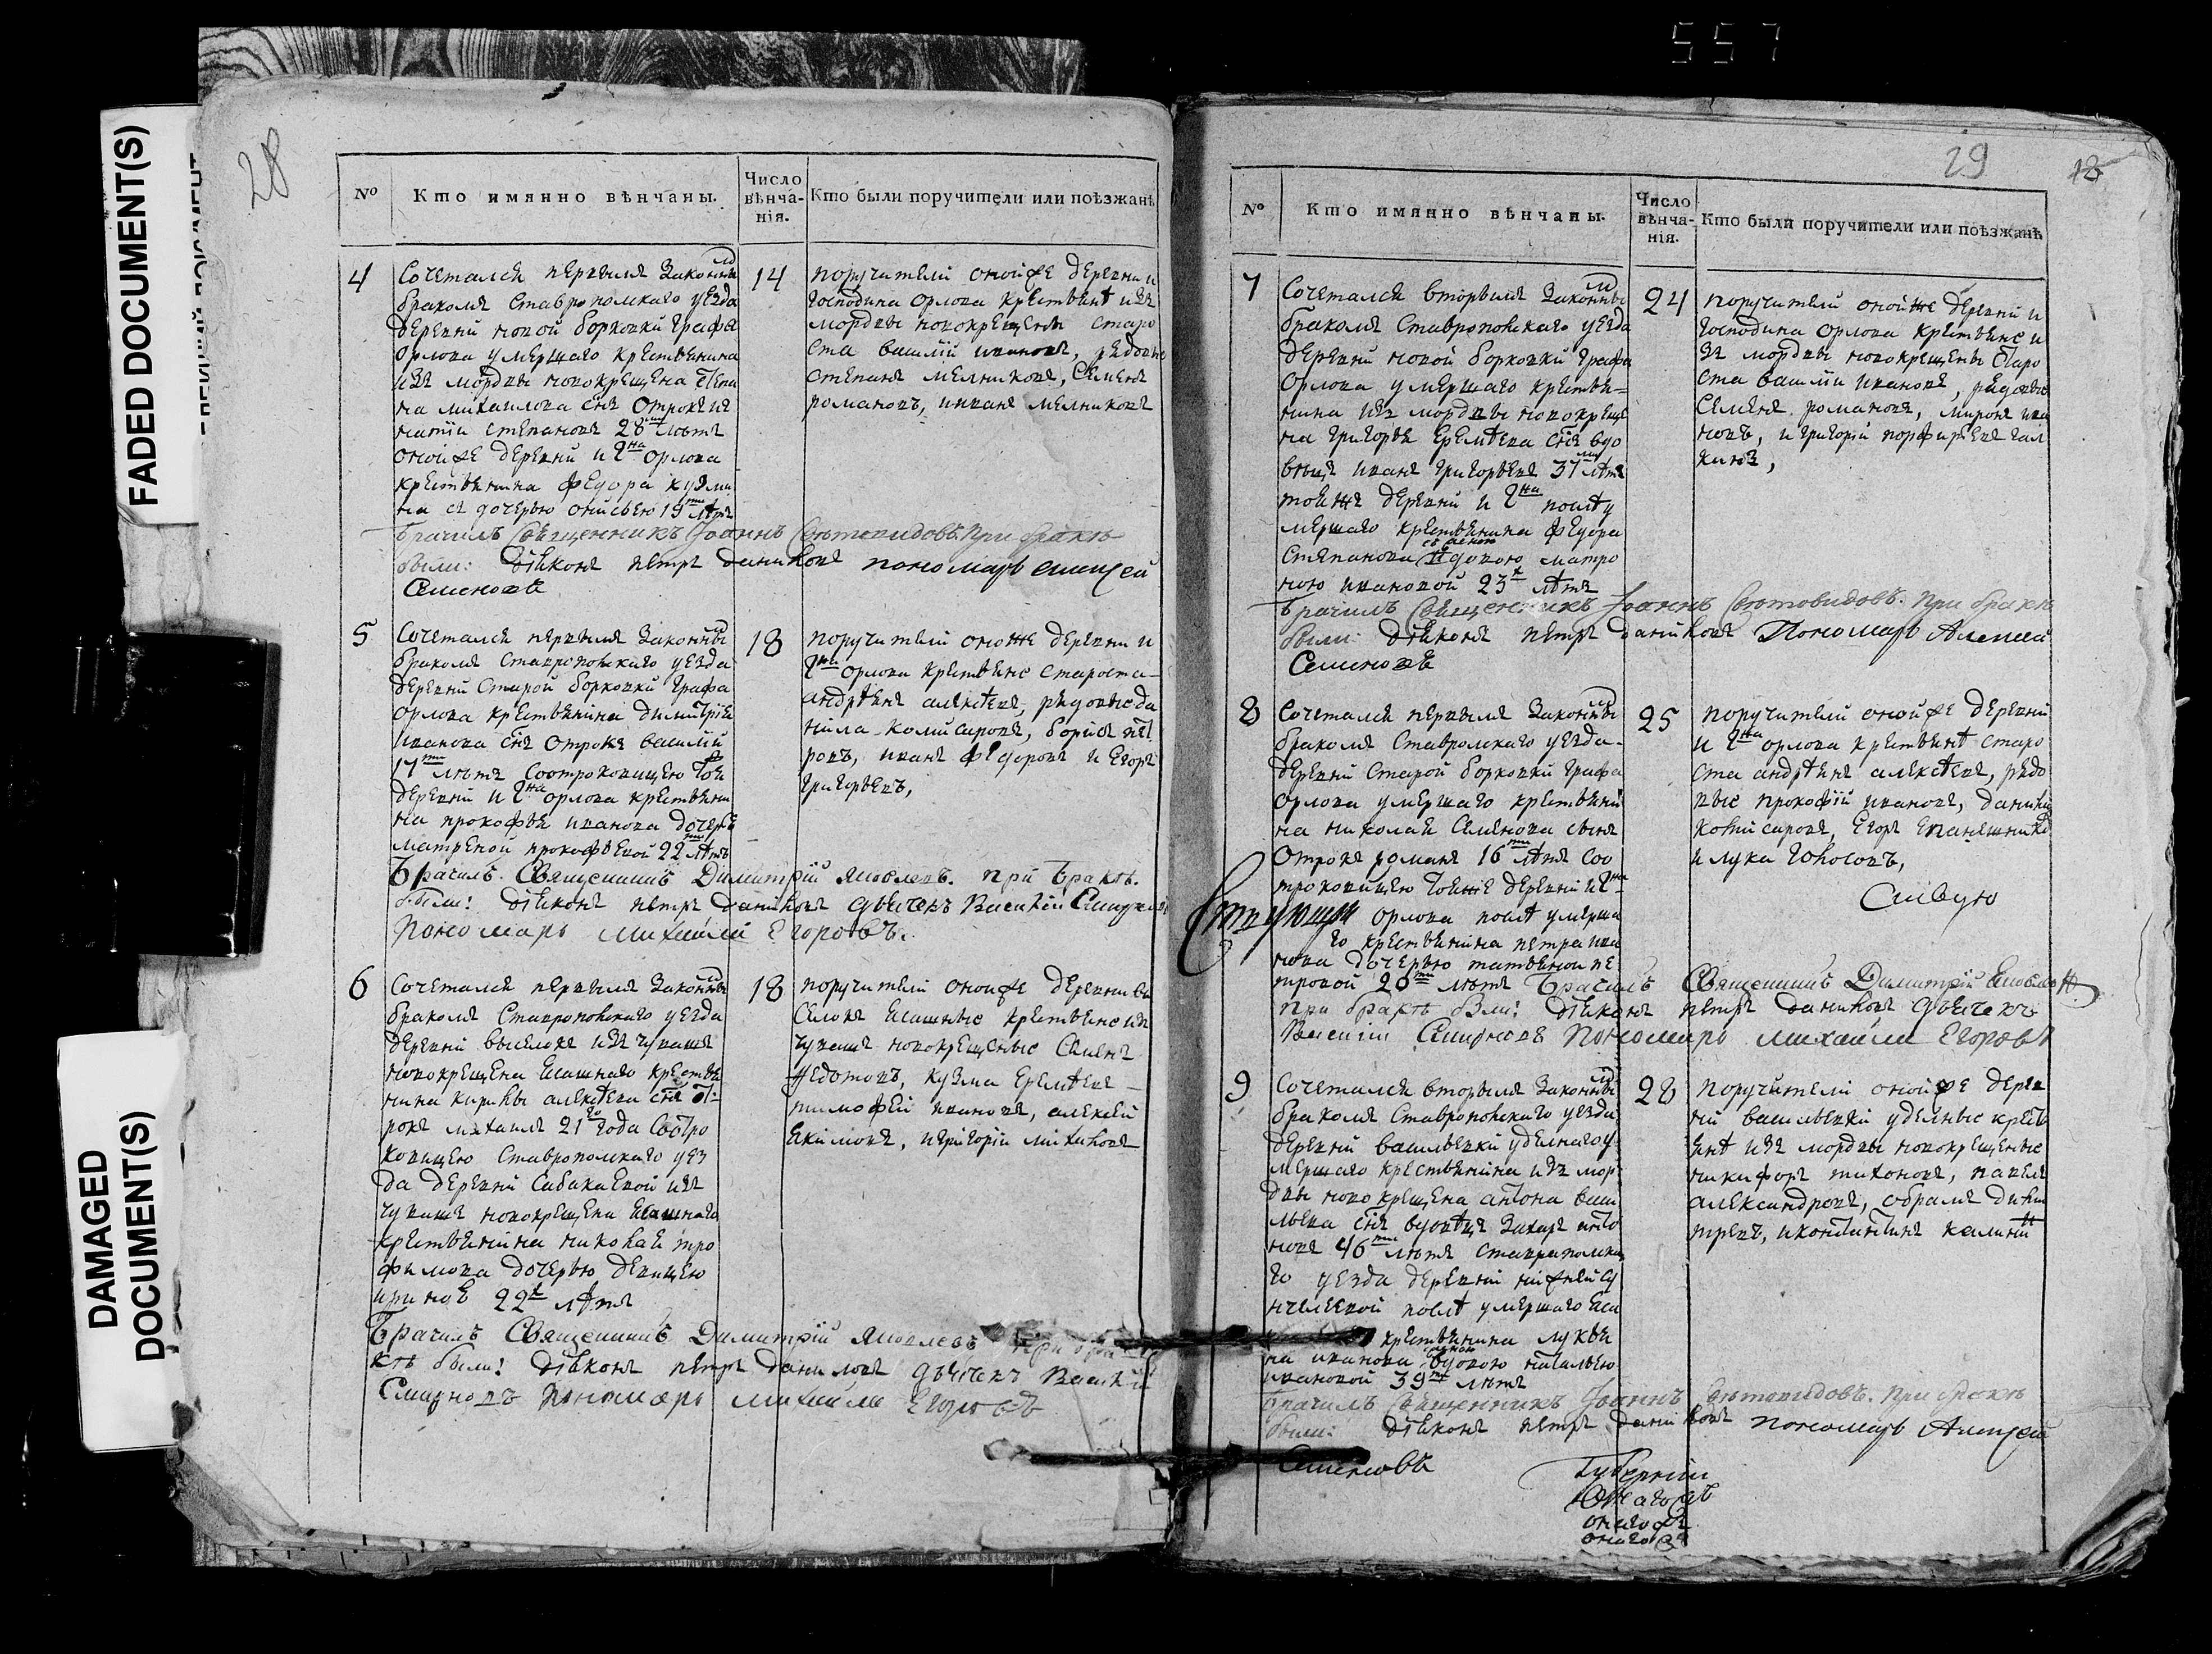 557
FADED DOCUMENT(S)
DAMAGED
DOCUMENT(S)
28
№
Кто имянно вѣнчаны.
Число
вѣнча-
нія.
Кто были поручители или поѣзжанѣ
4
Сочетался первымъ законны
м
бракомъ Ставрополскаго уезда
деревни новой борковки Графа
Орлова умершаго крестьянина
изъ мордвы новокрещена Степа
на михаилова снъ Отрокъ иг
натiи степановъ 28 лѣтъ
оной же деревни и Гна орлова
крестьянина федора кузми
на съ дочерью онисьею 19ти лѣтъ
14
поручители оной же деревни и
господина Орлова крестьянѣ изъ
мордвы новокрещены старо
ста василiй ивановъ, рядовые
степанъ мелниковъ, Семенъ
романовъ, иванъ мелниковъ
Брачилъ Священникъ Iоаннъ Свѣтовидовъ. При бракѣ
были: дiяконъ петръ даниловъ пономарь алексей
Семеновъ
5
Сочетался первымъ законны
м
бракомъ Ставропольскаго уезда
деревни Старой борковки Графа
Орлова крестьянина димитрiя
иванова снъ отрокъ василiй
17ти лѣтъ соотроковицею тоя
деревни и Гна орлова крестьяни
на прокофья иванова дочерью
матреной прокофьевой 22 лѣтъ
18
поручители оноже деревни и
Гна орлова крестьяне староста
андрѣянъ алексѣевъ, рядовые да
нила комисаровъ, борисъ пет
ровъ, иванъ федоровъ и Егоръ
григорьевъ,
Брачилъ Священникъ Димитрiй Яковлевъ. при бракѣ
были: дiяконъ петръ даниловъ дьячекъ Василiй Смирновъ
Пономарь михайла Егоровъ.
6
Сочетался первымъ законны
м
бракомъ Ставропольскаго уезда
деревни выселокъ изъ чувашъ
новокрещена ясашнаго крестья
нина кирилы алексѣева снъ от
рокъ михаилъ 21го года соотро
ковицею Ставрополскаго уез
да деревни Сабакаевой изъ
чувашъ новокрещена ясашнаго
крестьянина николая тро
фимова дочерью девицею
ириной 22х лѣтъ
18
поручители оной же деревни вы
селокъ ясашные крестьяне изъ
чувашъ новокрещеные Семенъ
федотовъ, кузма Еремѣевъ
тимофей ивановъ, алексей
якимовъ, и григорiи михаиловъ
Брачилъ Священникъ Димитрiй Яковлевъ При бра
кѣ были: дiяконъ петръ даниловъ дьячекъ Василiй
Смирновъ Пономарь михайла Егоровъ
29
13
№
Кто имянно вѣнчаны.
Число
вѣнча-
нія.
Кто были поручители или поѣзжанѣ
7
Сочетался вторымъ законны
м
бракомъ Ставропольскаго уезда
деревни новой борковки Графа
Орлова умершаго крестья-
нина изъ мордвы новокреще
на григорья Еремѣева снъ вдо
вецъ иванъ григорьевъ 37ми лѣтъ
тоя же деревни и Гна послѣ у
мершаго крестьянина федора
Степанова женою
вдовою матро
ною ивановой 23х лѣтъ
24
поручители оной же деревни и
господина Орлова крестьяне и
зъ мордвы новокрещены Старо
ста василiи ивановъ, рядовые
Семенъ романовъ, миронъ ива
новъ, и григорiй порфирьевъ гал
кинъ,
Брачилъ Священникъ Iоаннъ Свѣтовидовъ. При бракѣ
были: дiяконъ петръ даниловъ Пономарь Алексей
Семеновъ
8
Сочетался первымъ законны
м
бракомъ Ставромскаго уезда
деревни Старой борковки Графа
Орлова умершаго крестьяни
на николая Семенова сынъ
отрокъ романъ 16ти лѣтъ соо
троковицею тояже деревни и Гна
Орлова послѣ умерша
го крестьянина петра ива
нова дочерью татьяной пе
тровой 20ти лѣтъ
25
поручители оной же деревни
и Гна орлова крестьянѣ старо
ста андрѣянъ алексѣевъ, рядо
вые прокофiй ивановъ, данила
комисаровъ, Егоръ
и лука голосовъ,
Брачилъ Священникъ Димитрiй Яковлевъ
При бракѣ были: дiяконъ петръ даниловъ дьячекъ
Василiй Смирновъ Пономарь михайла Егоровъ
9
Сочетался вторымъ законны
м
бракомъ Ставропольскаго уезда
деревни васильевки уделнаго у
мершаго крестьянина изъ мор
двы новокрещена антона васи
льева снъ вдовецъ захаръ анто
новъ 46ти лѣтъ ставрополска
го уезда деревни нижней су
послѣ умершаго яса
крестьянина лукья
на иванова женою
вдовою наталью
ивановой 39ти лѣтъ
28
Поручители оной же дерев
ни васильевки уделные кресть
янѣ изъ мордвы новокрещеные
никифоръ тихоновъ, павелъ
александровъ, абрамъ дими
тревъ, и константинъ калини
н
Брачилъ Священникъ Iоаннъ Свѣтовидовъ. При бракѣ
были: дiяконъ петръ даниловъ пономарь Алексей
Семеновъ
Губернiи
онаго же